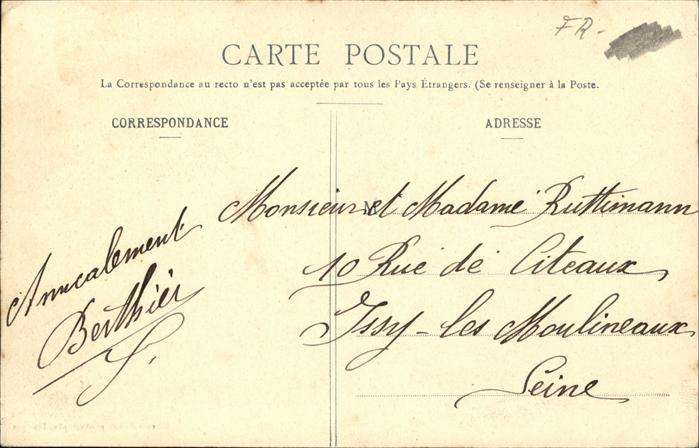 FR.
CARTE POSTALE
La Correspondance au recto n'est pas acceptée par tous les Pays Étrangers. (Se renseigner à la Poste.
CORRESPONDANCE
ADRESSE
Amicalement
Berthier
Monsieur et Madame Ruttimann
10 Rue de Citeaux
Issy-les Moulineaux
Seine